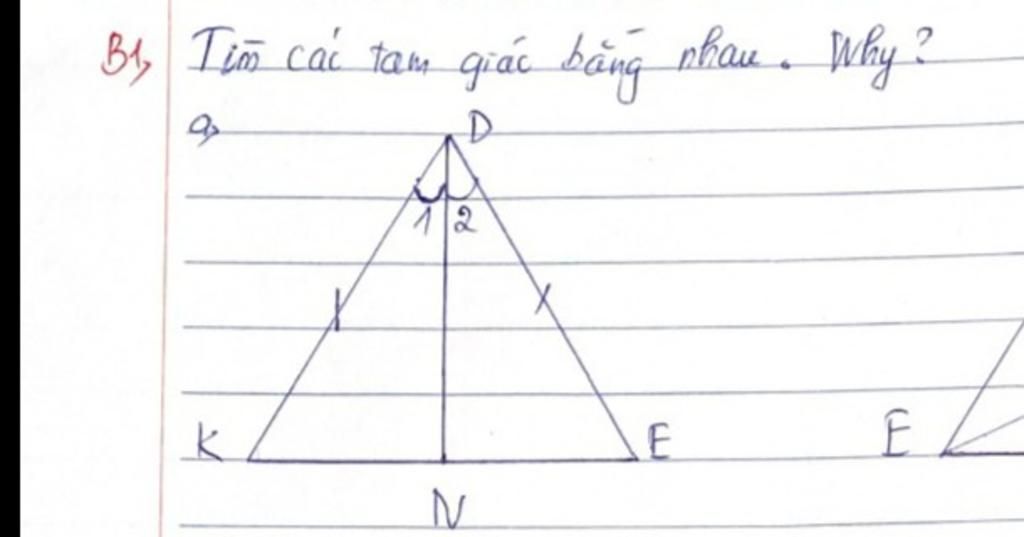 B1, Tìm các tam giác bằng nhau. Why?
a,
D
1 2
K E E
N